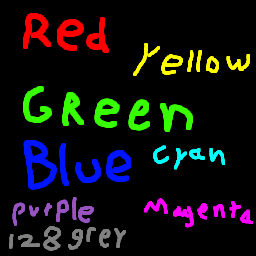 Red
Yellow
GReen
Blue
Cyan
purple
Magenta
128 grey